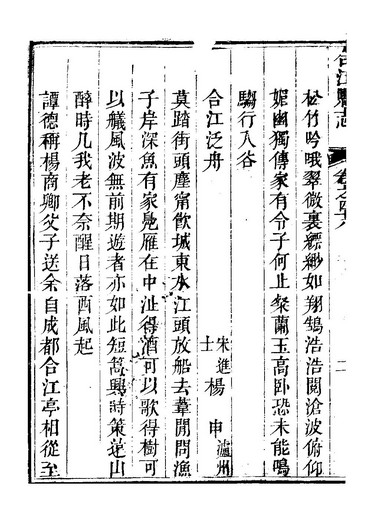 合江縣志
卷
二
松竹吟哦翠微裏縹緲如翔鵠浩浩閱滄波俯仰
媚幽獨傳家有令子何止粲蘭玉高卧恐未能鳴
騶行入谷
合江泛舟
宋進士 楊申 瀘州
莫踏街頭塵甯飲城東水江頭放船去葦閒問漁
子岸深魚有家鳧雁在中沚得酒可以歌得樹可
以艤風波無前期遊者亦如此短篙興時策蒼山
醉時几我老不奈醒日落西風起
譚德稱楊商卿父子送余自成都合江亭相從至